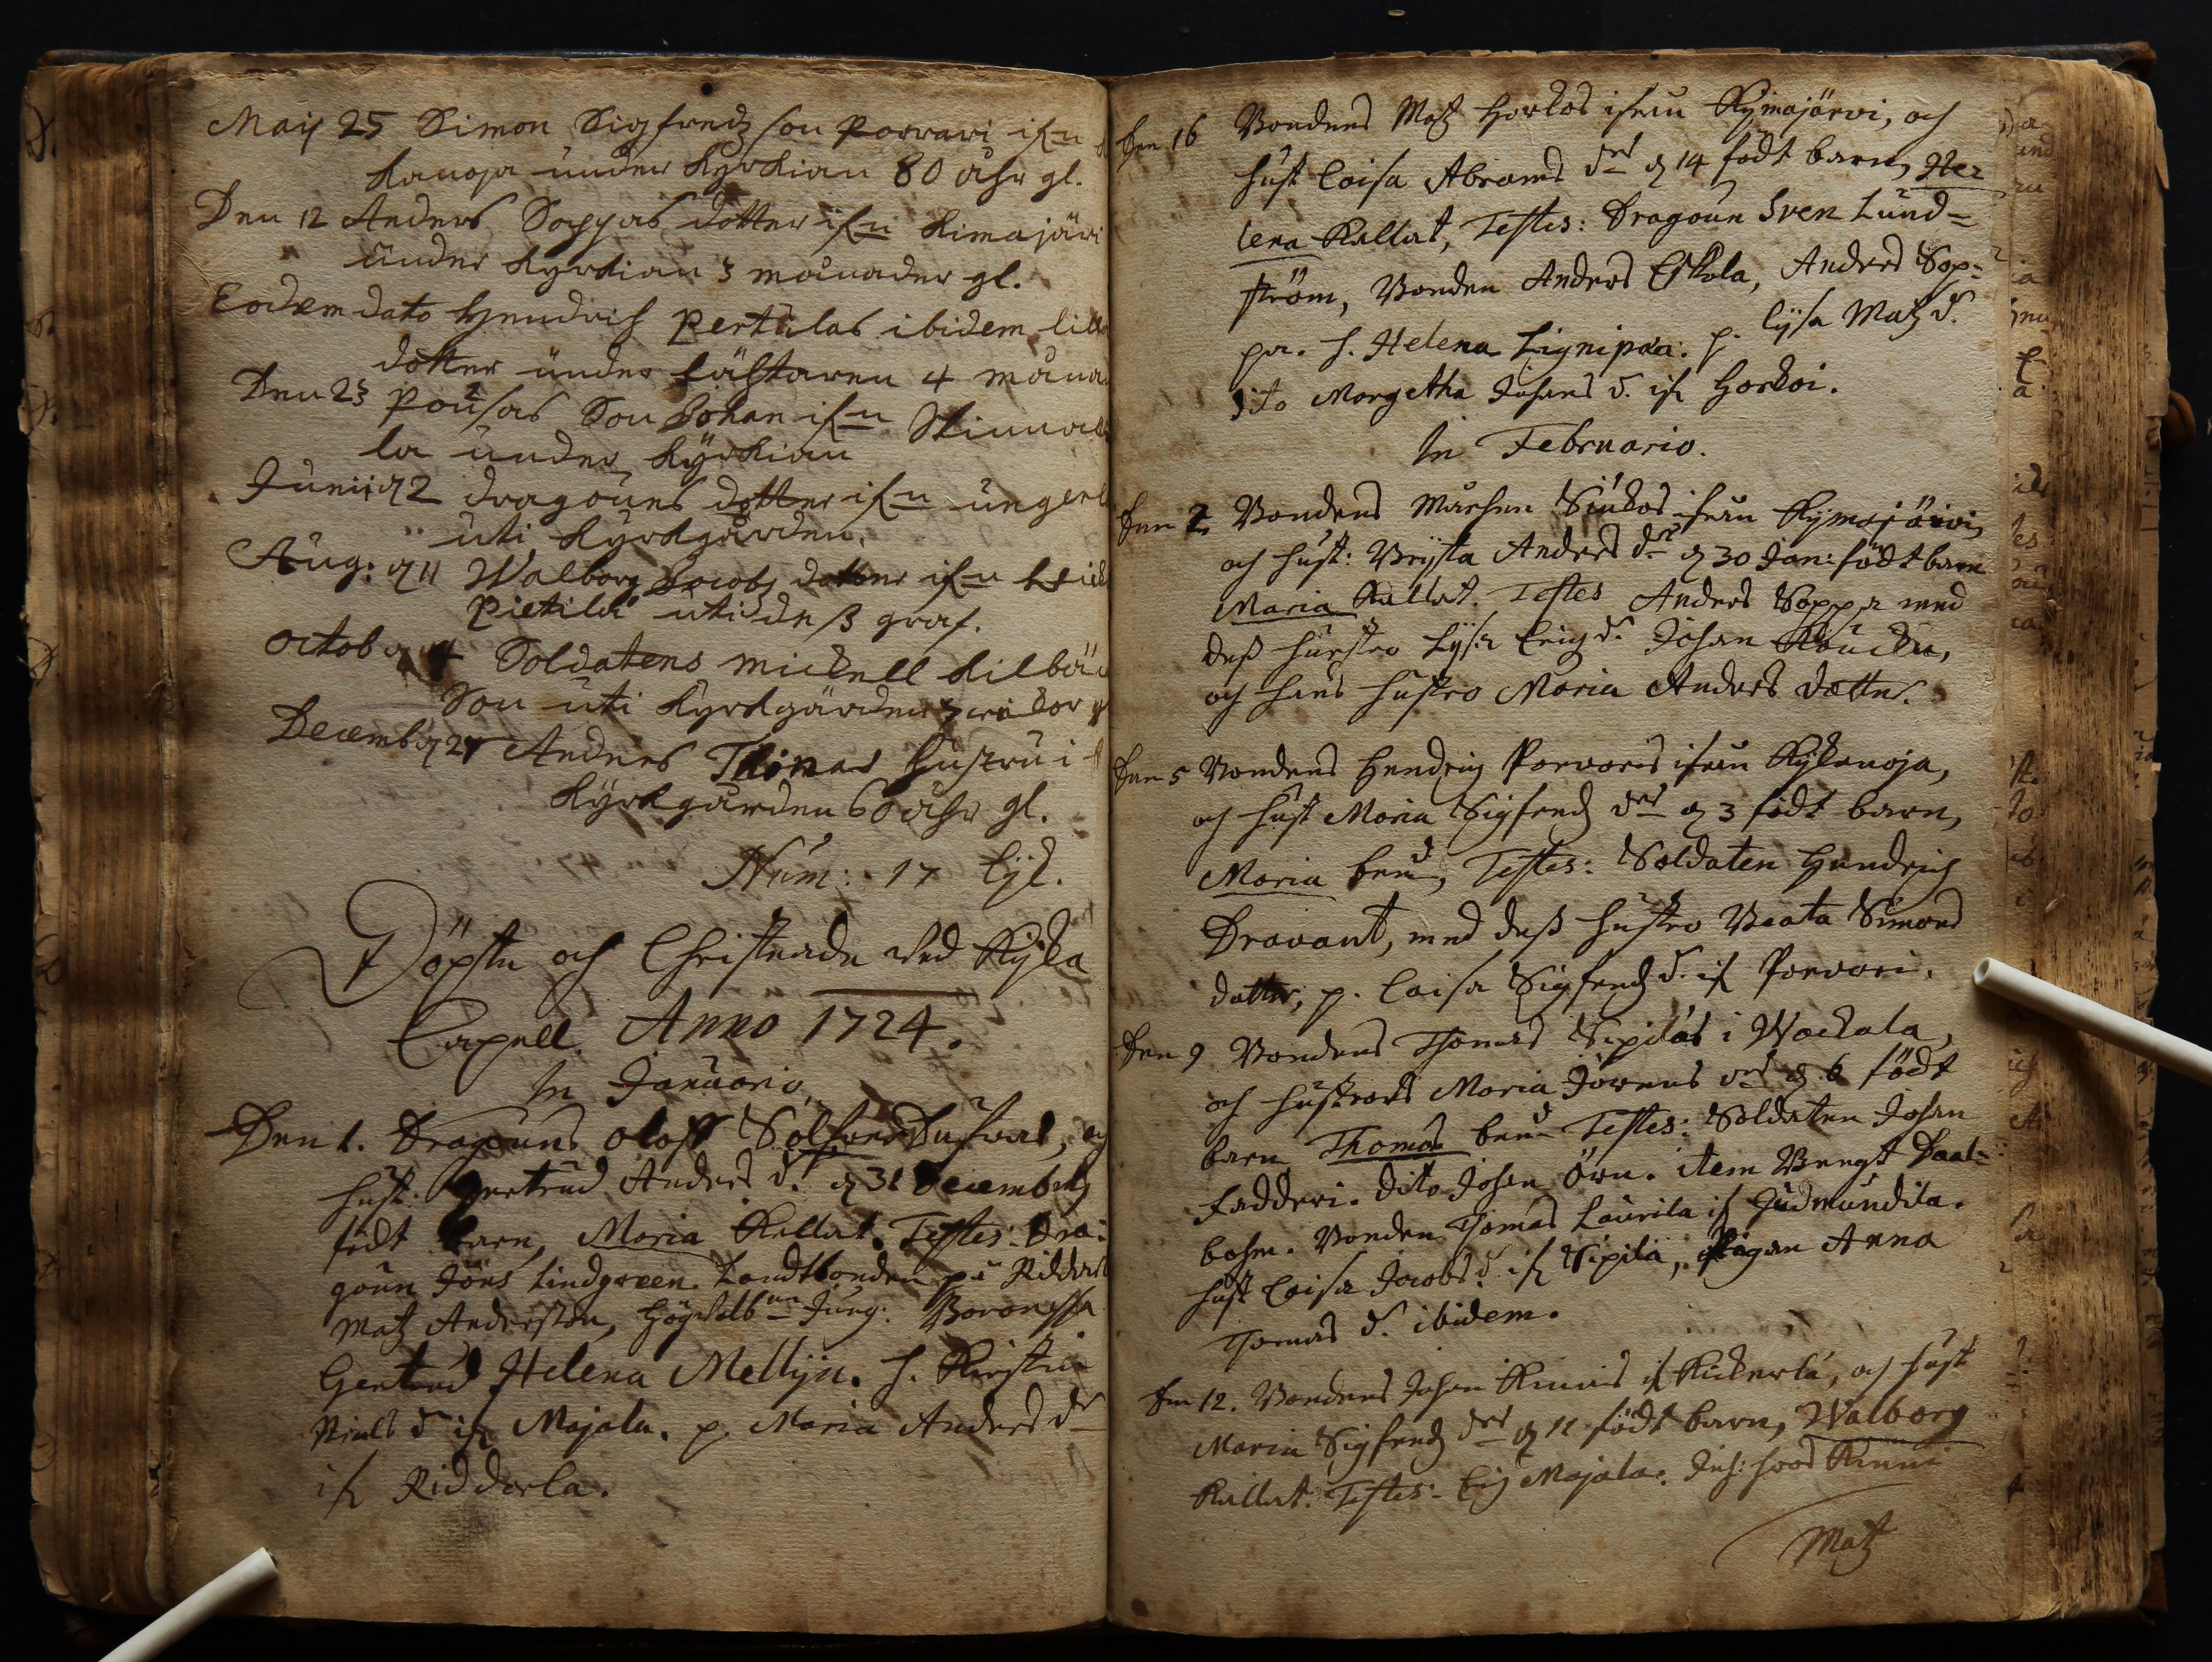 Maij 25 Simon Sigfredz son Porvari if:n
kanoja under kyrkian 80 åhr gl.
Den 12 Anders Soppas dotter if:n Kimajärvi
under kyrkian 3 månader gl.
Eodem dato Hendrich Pertulas ibidem
dotter under 4 månad
Den 23 Pousas Son Johan if:n
la under kyrkian
Junii d 2 dragouns dotter if:n ungerla
uti kyrkgården.
Aug: d 11 Walborg Jacobs dotter if:n
Pietilä uti deß graf.
Octob d 4 Soldatens Mickell Kilbäck
Son uti kyrkgården 3 wickor gl
Decemb d 27 Anders Thomas hustru i
kyrkgården 60 åhr gl.
Num: 17 lijk.
Döpta och Christnade wed Kijka
Capell. Anno 1724.
In Januario.
Den 1. Dragouns Oloff och
hust: Gertrud Anders d. d 31 Decembris
födt barn, Maria Kallat. Testes: Dra-
goun Jöns Lindgreen. Landtbonden på Ridderla
Matz Anderson, Högwälb:ne Jung: Baronessa
Gertrud Helena Mellijn. h. Kirstin
Niels d if Majala. p. Maria Anders dr
if Ridderla.
Den 16 Bondens Matz Horkos ifrån Kijmajärvi, och
hust Caisa Abrams dr d 14 födt barn, He-
lena Kallat, Testes: Dragoun Sven Lund-
ström, Bonden Anders Eskola, Anders Sop-
pa. h. Helena Lignipää. p. Lijsa Matz d.
dito Margetha Johans d. if Horkoi.
In Februario.
Den 2 Bondens Mårten Siukos ifrån Kijmajärvi,
och hust: Brijta Anders dr d 30 Jan: födt barn
Maria Kallat. Testes Anders Soppa med
deß hustro Lijsa Erichs d. Johan Koucku,
och hans hustro Maria Anders dotter.
Den 5 Bondens Hendrich Porvaris ifrån Kijkanoja,
och hust Maria Sigfredz dr d 3 födt barn,
Maria bend, Testes: Soldaten Hendrich
Dravant, med deß hustro Beata Simons
dotter, p. Caisa Sigfredz d. if Porvari.
Den 9 Bondens Thomas Sipiläs i Wackala,
och hustros Maria Jörens dr d 6 födt
barn Thomas bend Testes: Soldaten Johan
Fadderi. dito Johan Örn. item Bengt Daal-
bohm. Bonden Thomas Laurila if Judmundila.
hust Caisa Jacobs d. if Sipilä, pigan Anna
Thomas d. ibidem.
Den 12. Bondens Johan Kinnis if Kickerlä, och hust
Maria Sigfredz dr d 11 födt barn, Walborg
Kallat. Testes: Erich Majala. Joh: Kinni
Matz